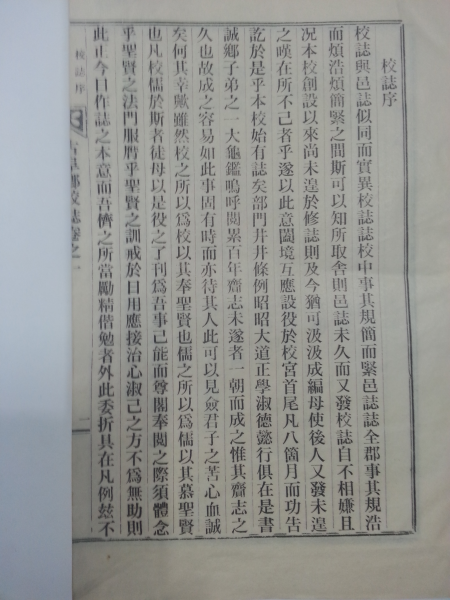 校誌序
校誌與邑誌似同而實異校誌誌校中事其規簡而緊邑誌誌全郡事其規浩
而煩浩煩簡緊之間斯可以知所取舍則邑誌未久而又發校誌自不相嫌且
况本校創設以來尚未遑於修誌則及今猶可汲汲成編毋使後人又發未遑
之嘆在所不己者乎遂以此意闔境互應設役於校宮首尾凡八箇月而功告
訖於是乎本校始有誌矣部門井井條例昭昭大道正學淑德懿行俱在是書
誠鄉子弟之一大龜鑑嗚呼閱累百年齋志未遂者一朝而成之惟其齋志之
久也故成之容易如此事固有時而亦待其人此可以見僉君子之苦心血誠
矣何其幸歟雖然校之所以爲校以其奉聖賢也儒之所以爲儒以其慕聖賢
也凡校儒於斯者徒毋以是役之了刊爲吾事己能而尊閣奉閱之際須體念
乎聖賢之法門服膺乎聖賢之訓戒於日用應接治心淑己之方不爲無助則
此正今日作誌之本意而吾儕之所當勵精偕勉者外此委折具在凡例玆不
校誌序
鄕校誌卷之一
一